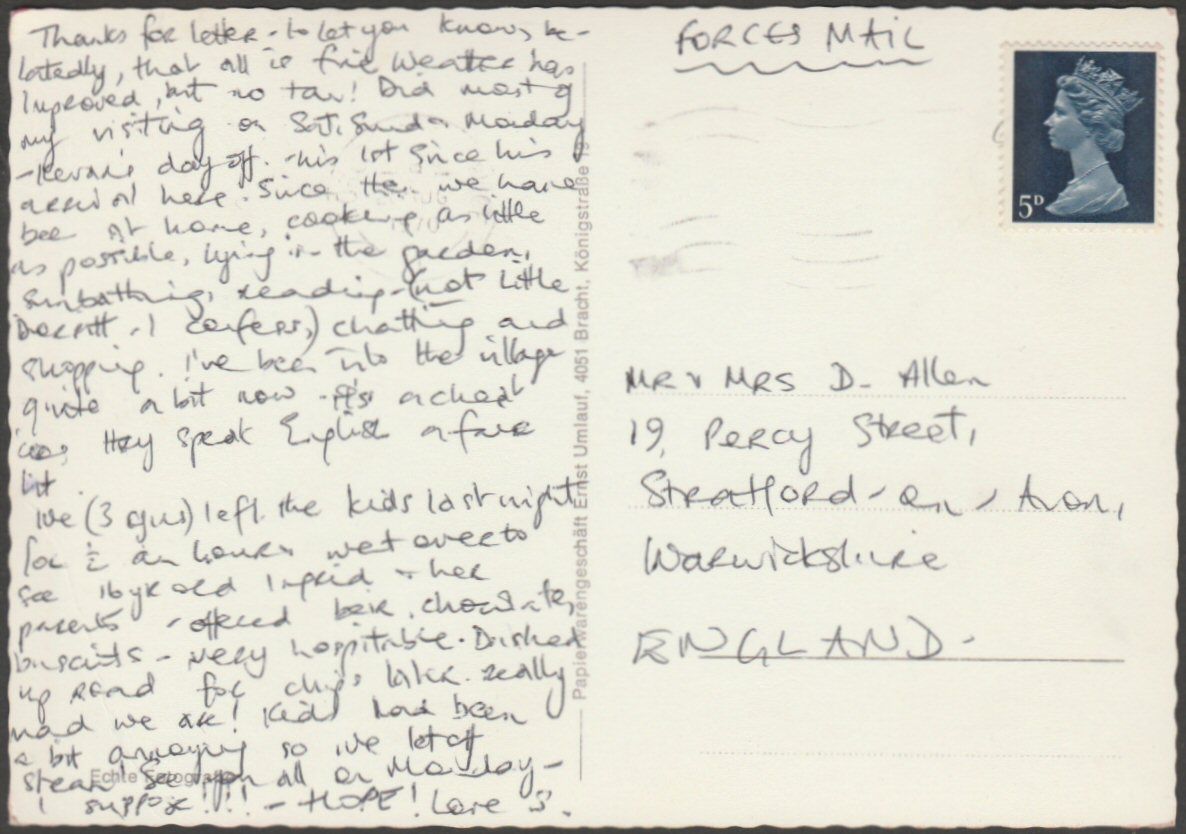 Thanks for letter - to let you know, be-
latedly, that all is fine. Weather has
improved, but no tan! Did most of
my visiting on Sat, Sund & Monday
- Kevan's day off - his 1st since his
arrival here. Since then we have
been at home, cooking as little
as possible, lying in the garden,
sunbathing, reading - (not Little
Dorritt - I confess,) chatting and
shopping. I've been into the village
quite a bit now - it's a
they speak English a fair
bit.
We (3 of us) left the kids last night
for ½ an hour & went over to
see 16yr old Ingrid & her
parents - offered beer, chocolate,
biscuits - very hospitable. Dashed
up road for chips later. Really
mad we are! Kids had been
a bit annoying so we let off
steam! See you all on Monday -
I suppose!!! - HOPE! Love S.
Echte Fotografie
Papierwarengeschäft Ernst Umlauf, 4051 Bracht, Königstraße 19
FORCES MAIL
5D
MR & MRS D. Allen
19, Percy Street,
Stratford-on-Avon,
Warwickshire
ENGLAND.